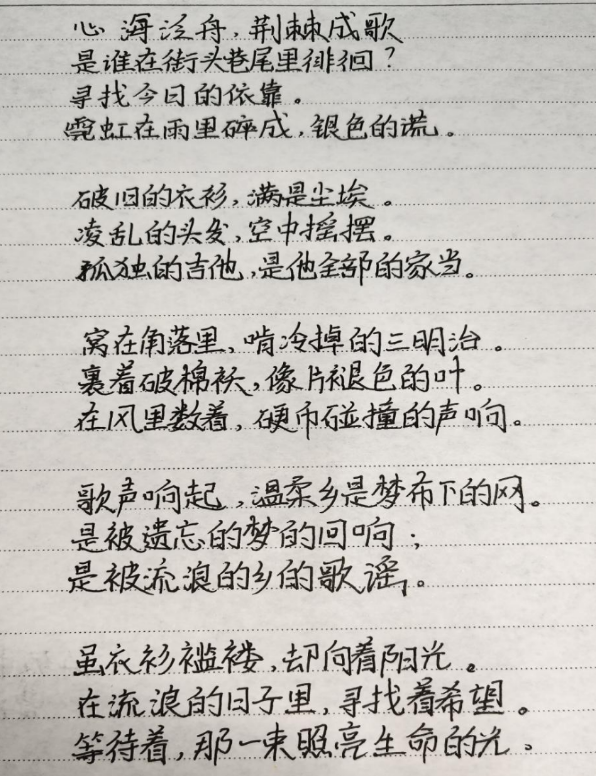 心海泛舟,荆棘成歌
是谁在街头巷尾里徘徊?
寻找今日的依靠。
霓虹在雨里碎成,银色的谎。
破旧的衣衫,满是尘埃。
凌乱的头发,空中摇摆。
孤独的吉他,是他全部的家当。
窝在角落里,啃冷掉的三明治。
裹着破棉袄,像片褪色的叶。
在风里数着,硬币碰撞的声响。
歌声响起,温柔乡是梦布下的网。
是被遗忘的梦的回响;
是被流浪的乡的歌谣,。
虽衣衫褴褛,却向着阳光。
在流浪的日子里,寻找着希望。
等待着,那一束照亮生命的光。